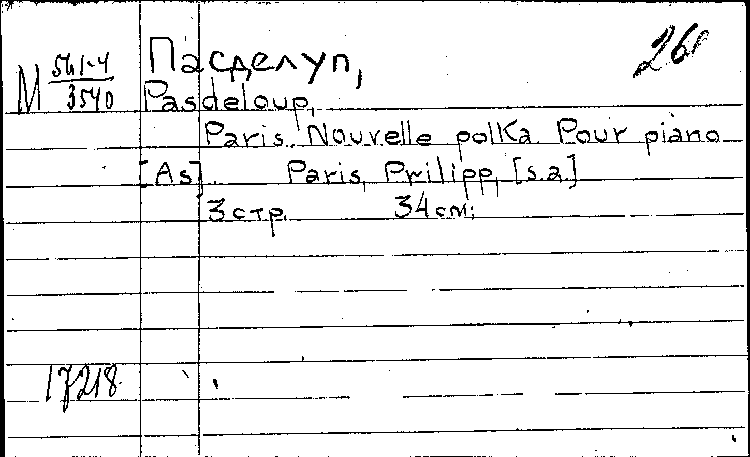 Пасделуп, 26
М 561-4
3540
Pasdeloup,
Paris. Nouvelle polka. Pour piano
[As] Paris, Prilipp, [s.a.]
3 стр. 34 см.
17218